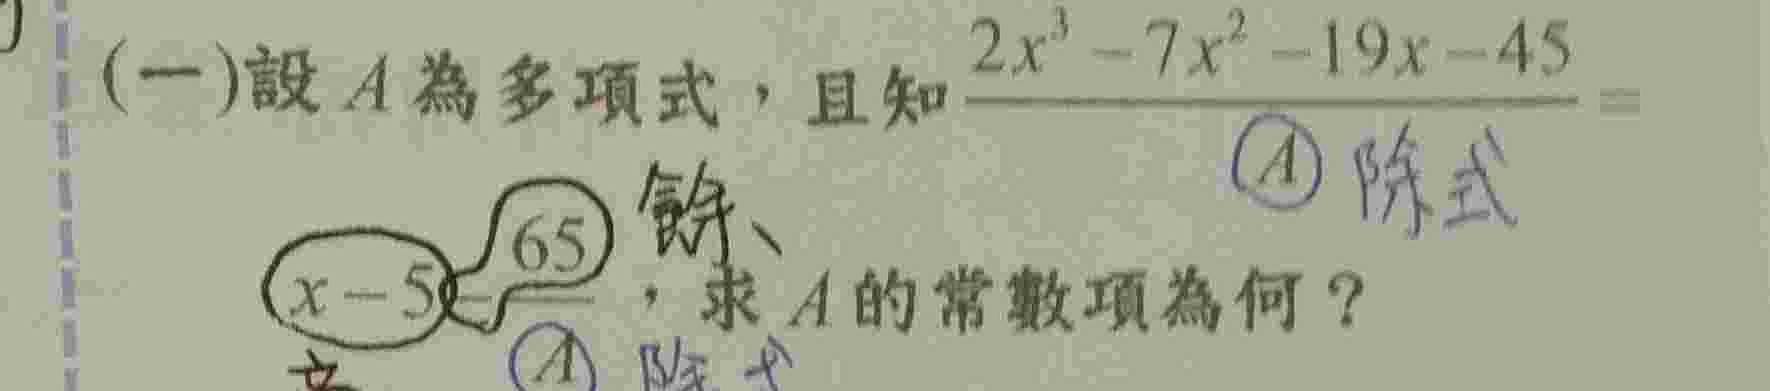 (一)設 A 為多項式，且知 \frac{2x³-7x²-19x-45}{A} =
除式
x-5-\frac{65}{A}，求 A 的常數項為何？
餘、
除式